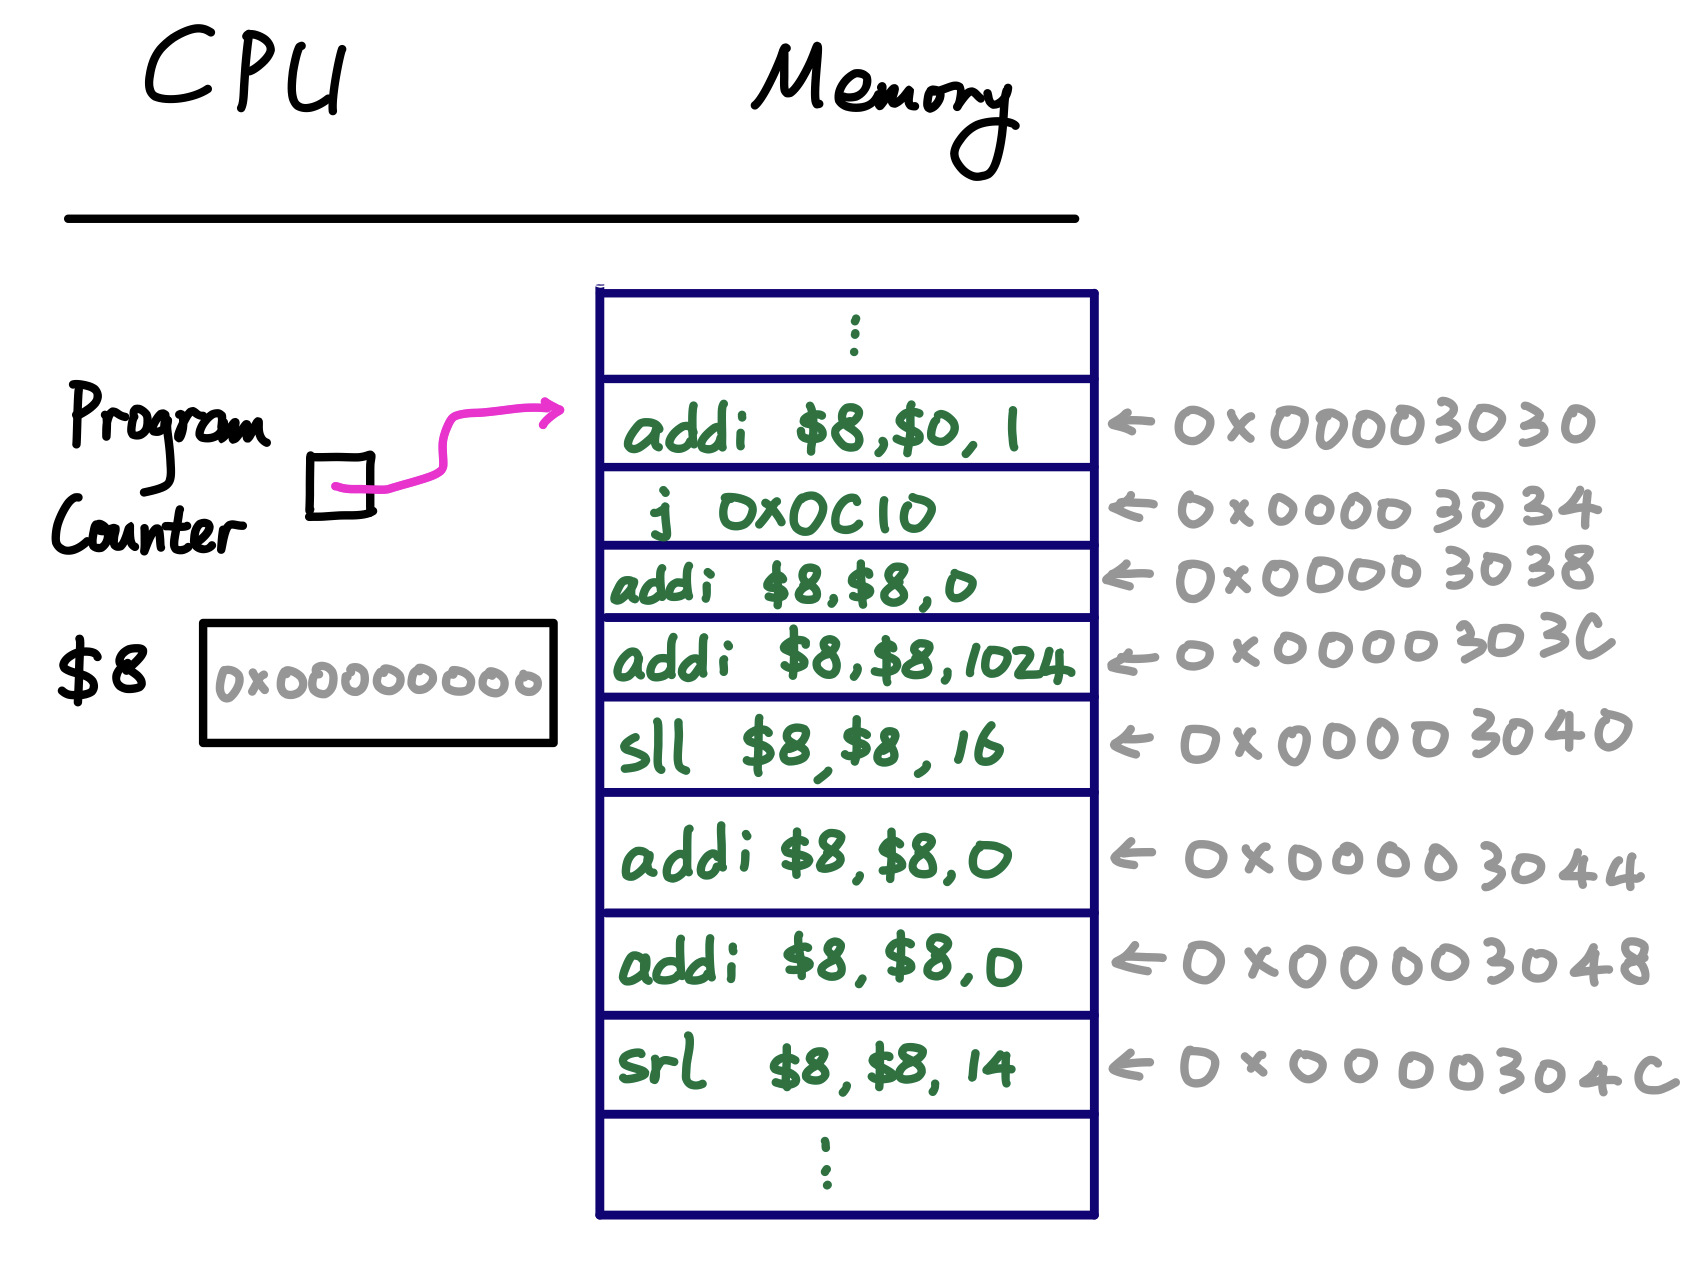 CPU Memory
⋮
Program
Counter
addi $8,$0, 1 ← 0x00003030
j 0x0C10 ← 0x00003034
addi $8,$8,0 ← 0x00003038
addi $8,$8,1024 ← 0x0000303C
$8 0x00000000
sll $8,$8,16 ← 0x00003040
addi $8,$8,0 ← 0x00003044
addi $8,$8,0 ← 0x00003048
srl $8,$8,14 ← 0x0000304C
⋮